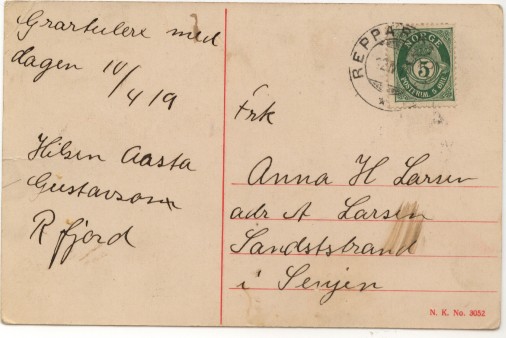 Grartulere med
dagen 10/4 19
Hilsen Aasta
Gustavson
R fjord
REPPAR
NORGE
5
POSTFRIM. 5 ØRE
Frk
Anna H Larsen
adr A Larsen
Sandststrand
i Senjen
N. K. No. 3052